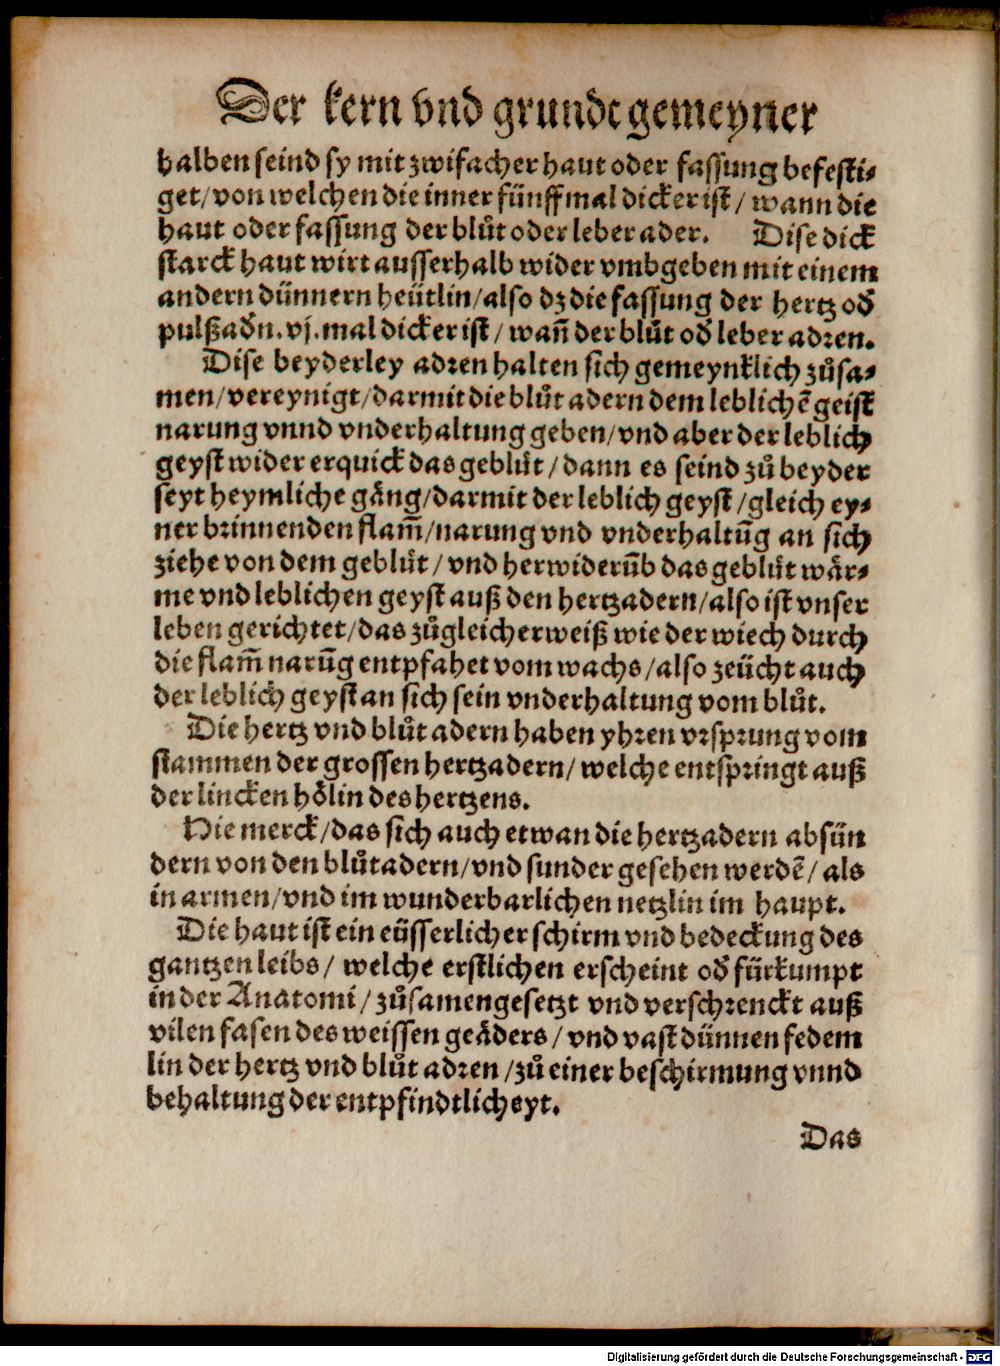 Der kern vnd grundt gemeyner
halben seind sy mit zwifacher haut oder fassung befesti⸗
get/von welchen die inner fünffmal dicker ist/ wann die
haut oder fassung der blůt oder leber ader. Dise dick
starck haut wirt ausserhalb wider vmbgeben mit einem
andern dünnern heütlin/also dz die fassung der hertz od̄
pulßad̄n.vj.mal dicker ist/ wañ der blůt od̄ leber adren.
Dise beyderley adren halten sich gemeynklich zůsa⸗
men/vereynigt/darmit die blůt adern dem leblichē geist
narung vnnd vnderhaltung geben/vnd aber der leblich
geyst wider erquick das geblůt/dann es seind zů beyder
seyt heymliche gäng/darmit der leblich geyst/gleich ey⸗
ner brinnenden flam̄/narung vnd vnderhaltūg an sich
ziehe von dem geblůt/ vnd herwiderūb das geblůt wär⸗
me vnd leblichen geyst auß den hertzadern/also ist vnser
leben gerichtet/das zůgleicherweiß wie der wiech durch
die flam̄ narūg entpfahet vom wachs/also zeücht auch
der leblich geyst an sich sein vnderhaltung vom blůt.
Die hertz vnd blůt adern haben yhren vrsprung vom
stammen der grossen hertzadern/ welche entspringt auß
der lincken hölin des hertzens.
Hie merck/das sich auch etwan die hertzadern absün
dern von den blůtadern/vnd sunder gesehen werdē/ als
in armen/vnd im wunderbarlichen netzlin im haupt.
Die haut ist ein eüsserlicher schirm vnd bedeckung des
gantzen leibs/ welche erstlichen erscheint od̄ fürkumpt
in der Anatomi/ zůsamengesetzt vnd verschrenckt auß
vilen fasen des weissen geäders/ vnd vast dünnen fedem
lin der hertz vnd blůt adren/zů einer beschirmung vnnd
behaltung der entpfindtlicheyt.
Das
Digitalisierung gefördert durch die Deutsche Forschungsgemeinschaft - DFG